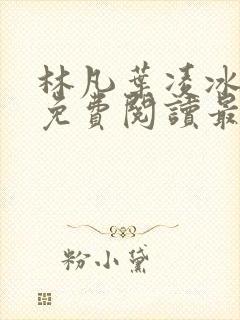 林凡葉凌冰
免費閱讀最
粉小黛